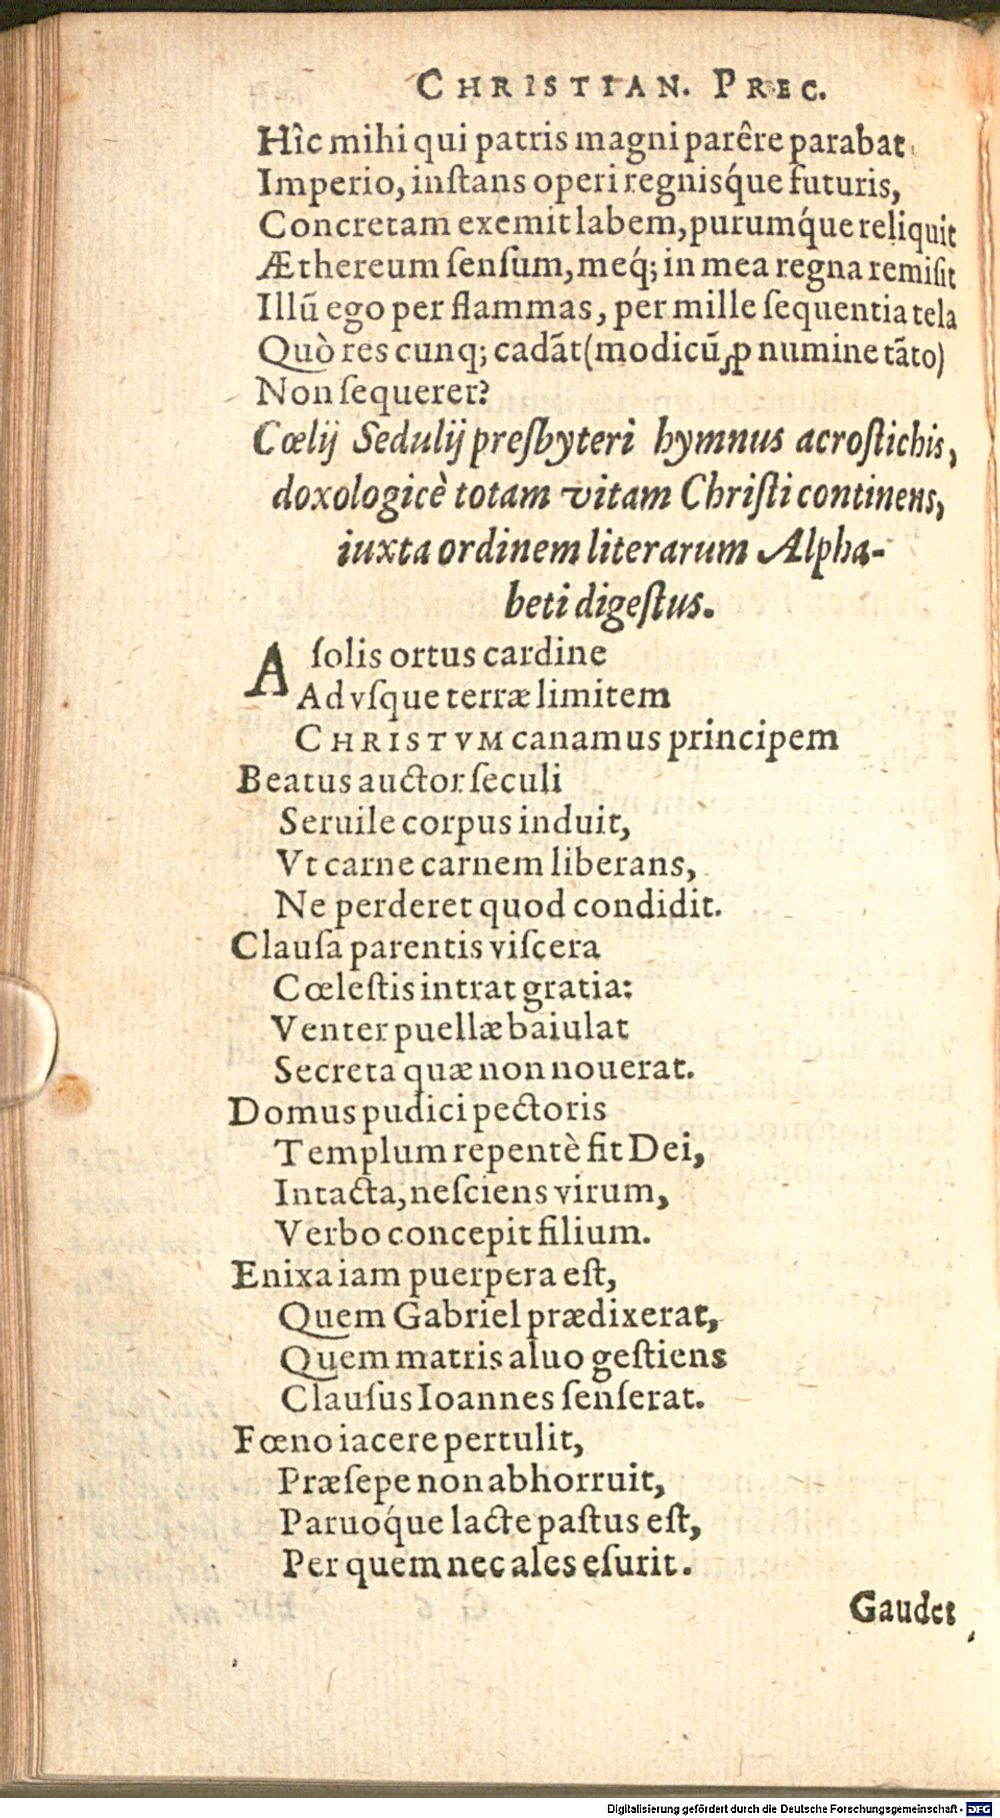 CHRISTIAN. PREC.
Hîc mihi qui patris magni parêre parabat
Imperio, inſtans operi regnisq́ue futuris,
Concretam exemit labem, purumq́ue reliquit
Æthereum ſenſum, meq́; in mea regna remiſit
Illũ ego per flammas, per mille ſequentia tela
Quò res cunq; cadãt (modicũ ꝓ numine tãto)
Non ſequerer?
Cœlij Sedulij preſbyteri hymnus acroſtichis,
doxologicè totam vitam Chriſti continens,
iuxta ordinem literarum Alpha-
beti digeſtus.
A ſolis ortus cardine
Ad vſque terræ limitem
CHRISTVM canamus principem
Beatus auctor ſeculi
Seruile corpus induit,
Vt carne carnem liberans,
Ne perderet quod condidit.
Clauſa parentis viſcera
Cœleſtis intrat gratia:
Venter puellæ baiulat
Secreta quæ non nouerat.
Domus pudici pectoris
Templum repentè fit Dei,
Intacta, neſciens virum,
Verbo concepit filium.
Enixa iam puerpera eſt,
Quem Gabriel prædixerat,
Quem matris aluo geſtiens
Clauſus Ioannes ſenſerat.
Fœno iacere pertulit,
Præſepe non abhorruit,
Paruoq́ue lacte paſtus eſt,
Per quem nec ales eſurit.
Gaudet
Digitalisierung gefördert durch die Deutsche Forschungsgemeinschaft - DFG